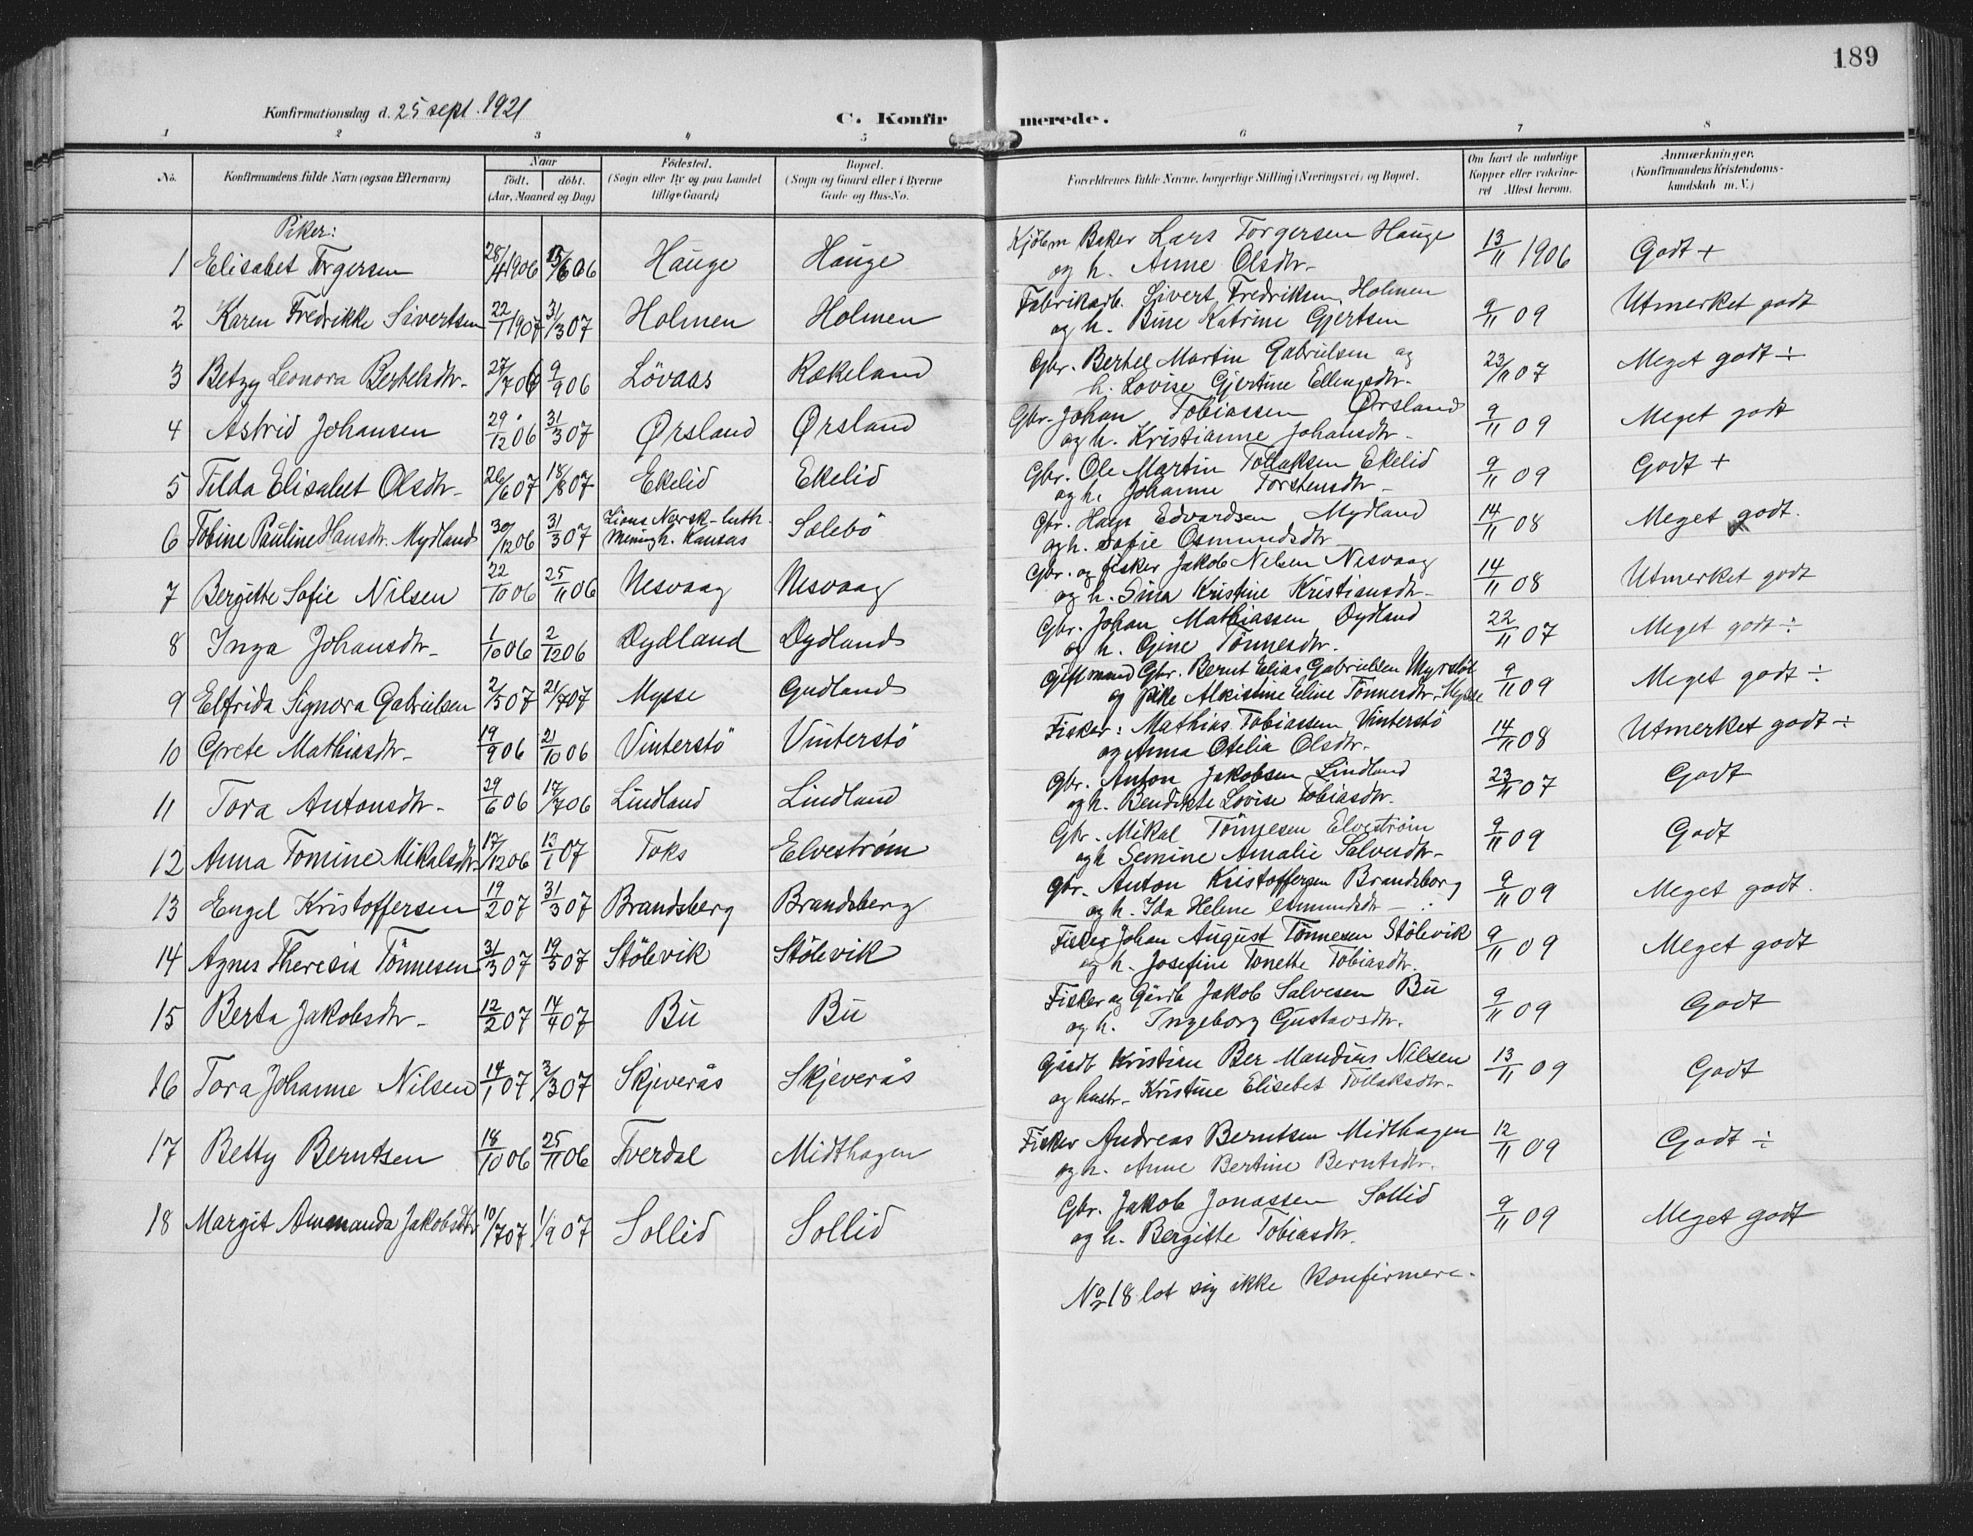 189
Konfirmationsdag d. 25 sept. 1921 C. Konfirmerede.
1 2 3 4 5 6 7 8
No. Konfirmandens fulde Navn (ogsaa Efternavn) Naar født. døbt. (Aar, Maaned og Dag) Födested. (Sogn eller By og paa Landet tillige Gaard) Bopæl. (Sogn og Gaard eller i Byerne Gade og Hus-No. Forældrenes fulde Navne, borgerlige Stilling (Næringsvei) og Bopæl. Om havt de naturlige Kopper eller vaccineret Attest herom. Anmærkninger. (Konfirmandens Kristendomskundskab m. V.)
Piker:
1 Elisabet Torgersen 28/4 1906 15/6 06 Hauge Hauge Kjøbm Baker Lars Torgersen Hauge og h. Anne Olsdtr. 13/11 1906 Godt +
2 Karen Fredrikke Sivertsen 22/1 1907 31/3 07 Holmen Holmen Fabrikarb. Sivert Fredriksen Holmen og h. Bine Katrine Gjertsen 9/11 09 Utmerket godt
3 Betzy Leonora Bertelsdtr. 27/7 06 9/9 06 Lövaas Rækeland Gbr. Bertel Martin Gabrielsen og h. Lovise Gjertine Ellingsdtr. 23/11 07 Meget godt ÷
4 Astrid Johansen 29/12 06 31/3 07 Ørsland Ørsland Gbr. Johan Tobiassen Ørsland og h. Kristianne Johansdtr. 9/11 09 Meget godt
5 Tilda Elisabet Olsdtr. 26/6 07 18/8 07 Ekelid Ekelid Gbr. Ole Martin Tollaksen Ekelid og h. Johanne Torstensdtr. 9/11 09 Godt +
6 Tobine Pauline Hansdtr. Mydland 30/12 06 31/3 07 Lions Norsk-luth. Menigh. Kansas Sælebö Gbr. Hans Edvardsen Mydland og h. Sofie Osmundsdtr 14/11 08 Meget godt.
7 Bergitte Sofie Nilsen 22/10 06 25/11 06 Nesvaag Nesvaag Gbr. og fisker Jakob Nilsen Nesvaag og h. Sina Kristine Kristiansdtr. 14/11 08 Utmerket godt
8 Inga Johansdtr. 1/10 06 2/12 06 Dydland Dydland Gbr. Johan Mathiassen Dydland og h. Gine Tönnesdtr. 22/11 07 Meget godt ÷
9 Elfrida Signora Gabrielsen 2/5 07 21/7 07 Mysse Gudland Gift mand Gbr. Bernt Elias Gabrielsen og pike Alexine Tönnesdtr. Mysse 9/11 09 Meget godt ÷
10 Grete Mathiasdtr. 19/9 06 21/10 06 Vinterstö Vinterstö Fisker: Mathias Tobiassen Vinterstö og Anna Otelia Olsdtr. 14/11 08 Utmerket godt ÷
11 Tora Antonsdtr. 29/6 06 17/7 06 Lindland Lindland Gbr. Anton Jakobsen Lindland og h. Bendikte Lovise Tobiasdtr. 23/11 07 Godt
12 Anna Tomine Mikalsdtr 17/12 06 13/1 07 Toks Elvestrøm Gbr. Mikal Tönnesen Elveström og h Semine Amalie Salvesdtr. 9/11 09 Godt
13 Engel Kristoffersen 19/2 07 31/3 07 Brandsberg Brandsberg Gbr. Anton Kristoffersen Brandsberg og h. Ida Helene Asmundsdtr 9/11 09 Meget godt.
14 Agnes Theresia Tönnesen 31/3 07 19/5 07 Stölevik Stölevik Fisker Johan August Tönnesen Stölevik og h. Josefine Tonette Tobiasdtr. 9/11 09 Meget godt
15 Berta Jakobsdtr. 12/2 07 14/4 07 Bu Bu Fisker og Gårdb Jakob Salvesen Bu og h. Ingeborg Gustavsdtr. 9/11 09 Godt
16 Tora Johanne Nilsen 14/1 07 3/3 07 Skjeverås Skjeverås Gårdb Kristian Ber Mandius Nilsen og hustr. Kristine Elisebet Tollaksdtr. 13/11 09 Godt
17 Betty Berntsen 18/10 06 25/11 06 Tverdal Midthagen Fisker Andreas Berntsen Midthagen og h. Anne Bertine Berntsdtr. 12/11 09 Godt ÷
18 Margit Ammanda Jakobsdtr 10/7 07 1/9 07 Sollid Sollid Gbr. Jakob Jonassen Sollid og h. Bergitte Tobiasdtr. 9/11 09 Meget godt
No 18 lot sig ikke konfirmere.